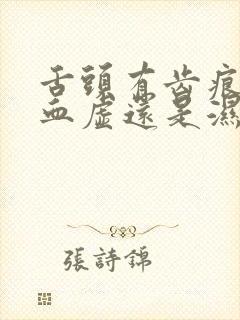 舌頭有齒痕
血虛還是濕
張詩錦